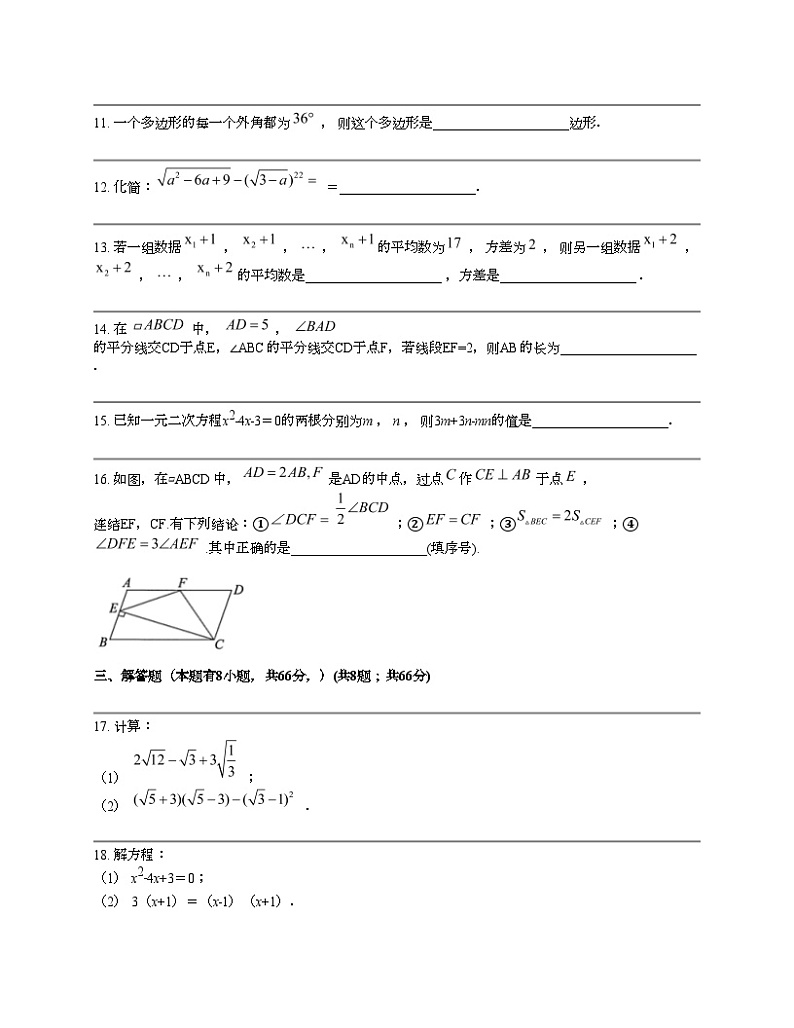 11. 一个多边形的每一个外角都为 36° ， 则这个多边形是____________________边形.
12. 化简：√(a²－6a＋9)－(√(3－a))²²＝ ＝____________________．
13. 若一组数据 x₁＋1 ， x₂＋1 ， … ， xₙ＋1 的平均数为 17 ， 方差为 2 ， 则另一组数据 x₁＋2 ，
x₂＋2 ， … ， xₙ＋2 的平均数是____________________ ，方差是____________________．
14. 在 ▱ABCD 中， AD＝5 ， ∠BAD
的平分线交CD于点E，∠ABC 的平分线交CD于点F，若线段EF=2，则AB 的长为____________________
．
15. 已知一元二次方程x²-4x-3＝0的两根分别为m ，n ， 则3m+3n-mn的值是____________________．
16. 如图，在=ABCD 中， AD＝2AB,F 是AD的中点，过点 C 作 CE⊥AB 于点 E ，
连结EF，CF.有下列结论：①∠DCF＝ 1/2 ∠BCD ；②EF＝CF ；③S△BEC＝2S△CEF ；④
∠DFE＝3∠AEF .其中正确的是____________________(填序号).
A F D
E
B C
三、解答题（本题有8小题，共66分，）(共8题；共66分)
17. 计算：
（1） 2√12－√3＋3√(1/3) ；
（2） (√5＋3)(√5－3)－(√3－1)² ．
18. 解方程：
（1） x²-4x+3＝0；
（2） 3（x+1）＝（x-1）（x+1）．